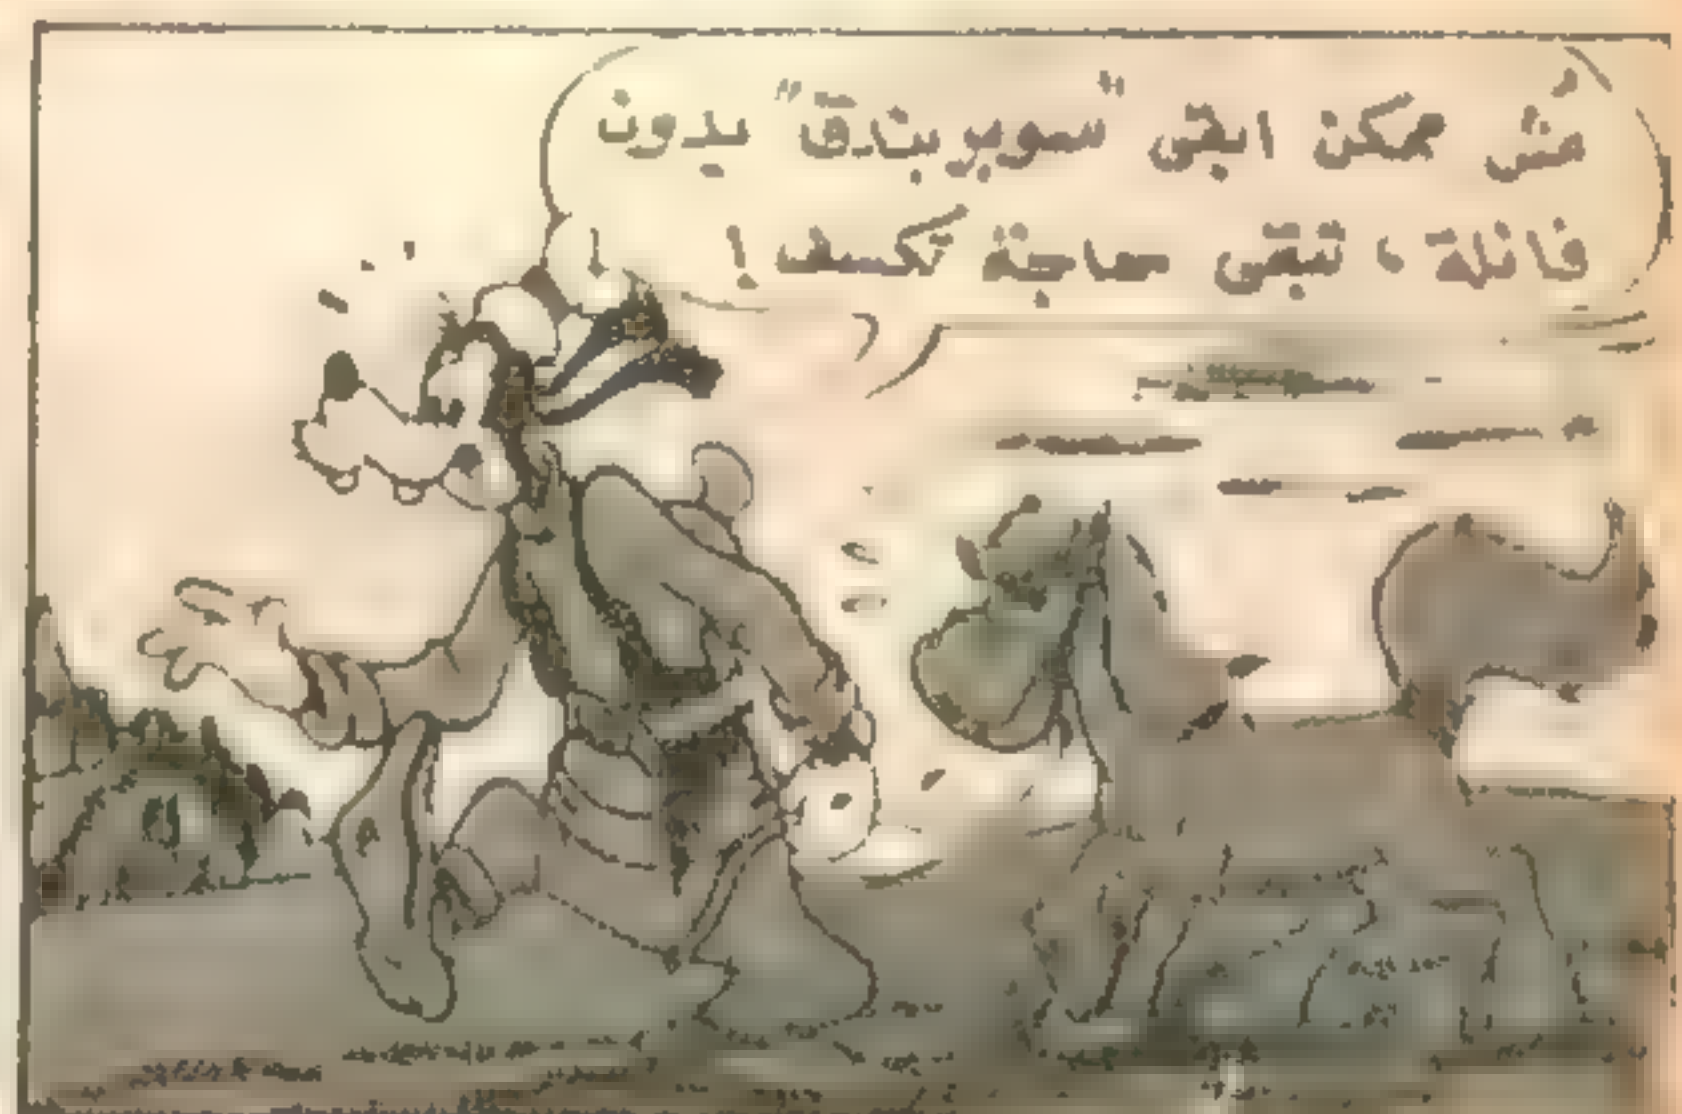 مش ممكن ابقى "سوبر بندق" بدون
فانلة، تبقى حاجة تكسف!